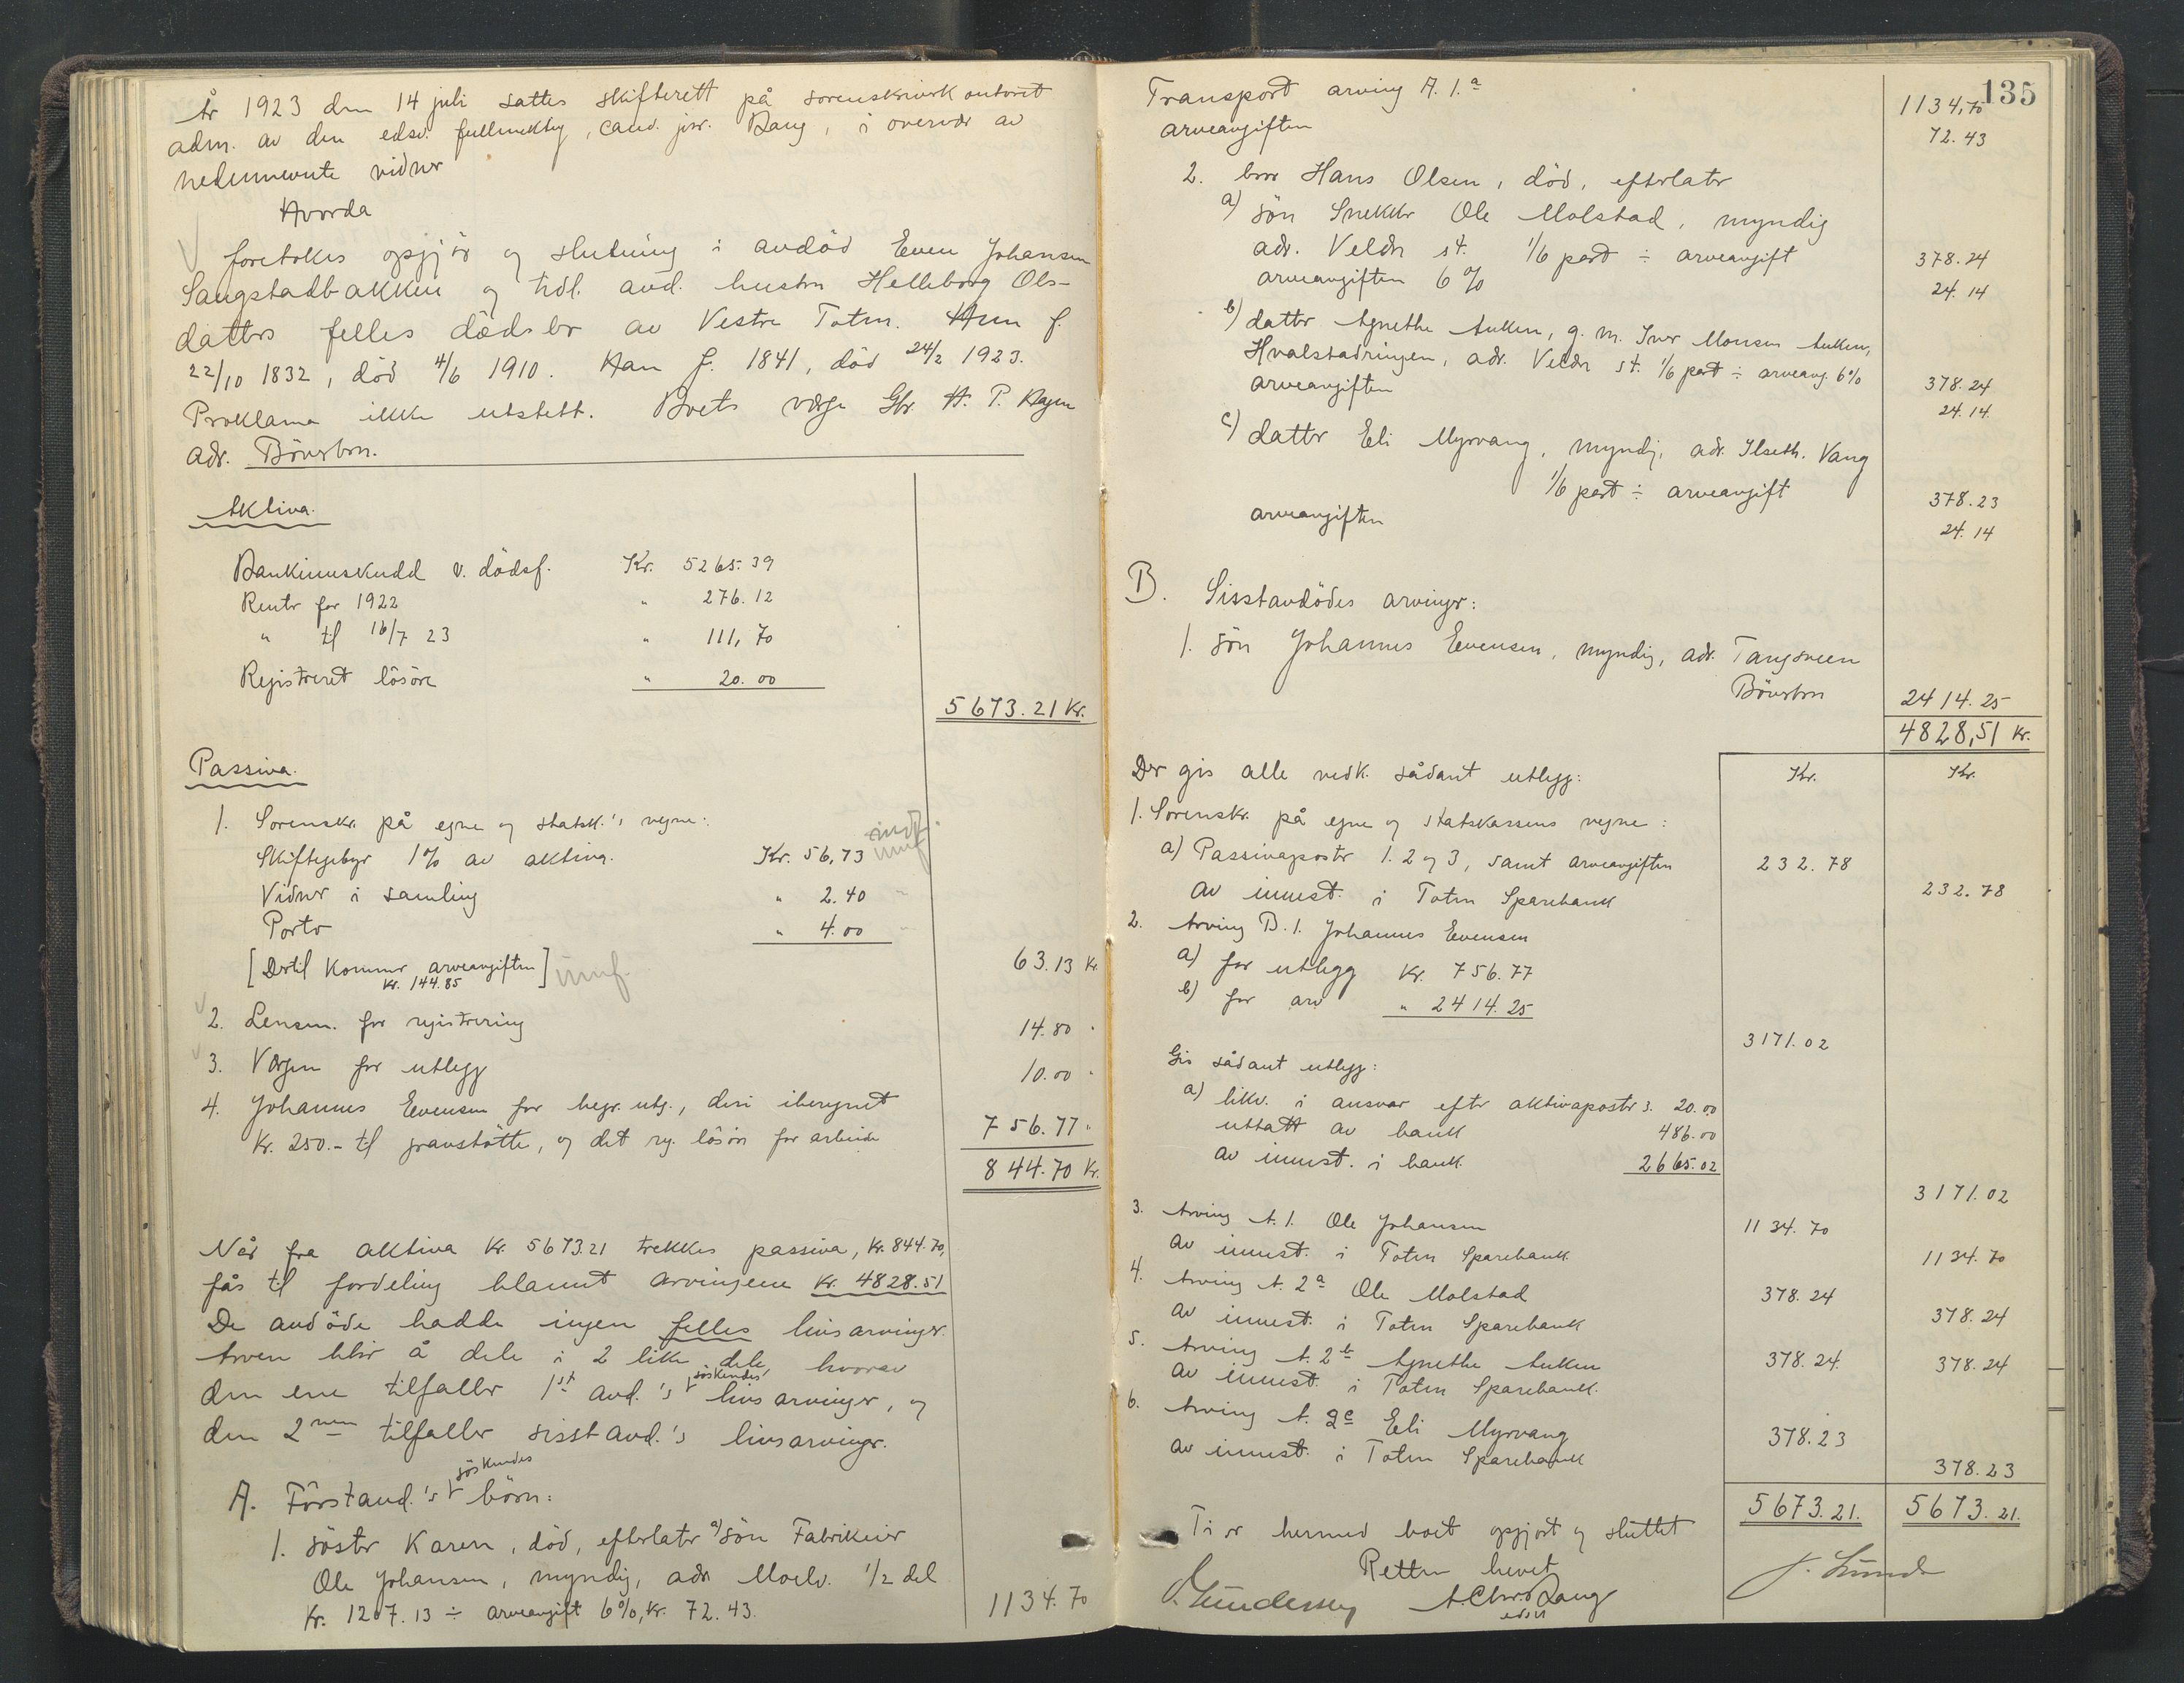 År 1923 den 14 juli sattes skifterett på sorenskriverkontoret
adm. av den edsv. fullmektig, cand. jur. Bang, i overvær av
nedennevnte vidner
Hvorda
foretokes opgjör og slutning i avdöd Even Johansen
Sangstadbakken og tidl. avd. hustru Helleborg Ols-
datters felles dödsbo av Vestre Toten. Hun f.
22/10 1832, död 4/6 1910. Han f. 1841, död 24/2 1923.
Proklama ikke utstett. Boets verge Gbr. H. P. Hagen
adr. Böverbru.
Aktiva.
Bankinnskudd v. dödsf. Kr. 5265.39
Renter for 1922 " 276.12
" til 16/7 23 " 111,70
Registreret lösöre " 20.00
5673.21 Kr.
Passiva.
1. Sorenskr. på egne og statsk.'s vegne:
Skiftegebyr 1% av aktiva. Kr. 56,73
Vidner i samling " 2.40
Porto " 4.00
63.13 Kr.
[Dertil kommer arveavgiften] innf.
Kr. 144.85
2. Lensm. for registrering 14.80 "
3. Vergen for utlegg 10.00 "
4. Johannes Evensen for begr. utg., deri iberegnet
Kr. 250.- til gravstötte, og det reg. lösöre for arbeide 756.77 "
844.70 Kr.
Når fra aktiva Kr. 5673.21 trekkes passiva, Kr. 844.70,
fås til fordeling blandt arvingene Kr. 4828.51
De avdöde hadde ingen felles livsarvinger.
Arven blir å dele i 2 like dele, hvorav
den ene tilfaller 1st avd.'s söskendes livsarvinger, og
den 2nen tilfaller sisstavd.'s livsarvinger.
A. Förstavd.'s söskendes börn:
1. söster Karen, död, efterlater a) sön Fabrikeier
Ole Johansen, myndig, adr Moelv. 1/2 del
Kr. 1207.13 ÷ arveavgift 6%, Kr. 72.43. 1134.70
135
Transport arving A. 1.a 1134,70
arveavgiften 72.43
2. bror Hans Olsen, död, efterlater
a) sön Snekker Ole Molstad, myndig
adr. Veldre st. 1/6 part ÷ arveavgift 378.24
arveavgiften 6% 24.14
b) datter Agnethe Auken, g. m. Iver Monsen Auken,
Hvalstadringen, adr. Veldre st. 1/6 part ÷ arveavg. 6% 378.24
arveavgiften 24.14.
c) datter Eli Myrvang, myndig, adr. Ilseth. Vang
1/6 part ÷ arveavgift 378.23
arveavgiften 24.14
B. Sisstavdödes arvinger:
1. sön Johannes Evensen, myndig, adr. Tangsveen
Böverbru 2414.25
4828,51 Kr.
Der gis alle vedk. sådant utlegg: Kr. Kr.
1. Sorenskr. på egne og statskassens vegne:
a) Passivaposter 1. 2 og 3, samt arveavgiften 232.78
av innest. i Toten Sparebank 232.78
2. Arving B. 1. Johannes Evensen
a) for utlegg Kr. 756.77
b) for arv " 2414.25
3171.02
Gis sådant utlegg:
a) likv. i ansvar efter aktivaposter 3. 20.00
uttatt av bank 486.00
av innest. i bank. 2665.02
3171.02
3. Arving A. 1. Ole Johansen 1134.70
av innest. i Toten Sparebank 1134.70
4. Arving A. 2a Ole Molstad 378.24
av innest. i Toten Sparebank 378.24
5. Arving A. 2b Agnethe Auken 378.24.
av innest. i Toten Sparebank. 378.24
6. Arving A. 2c Eli Myrvang 378.23
av innest. i Toten Sparebank 378.23
5673.21. 5673.21.
Ti er hermed boet opgjort og sluttet
Retten hevet
A. Chr. Bang
edsv